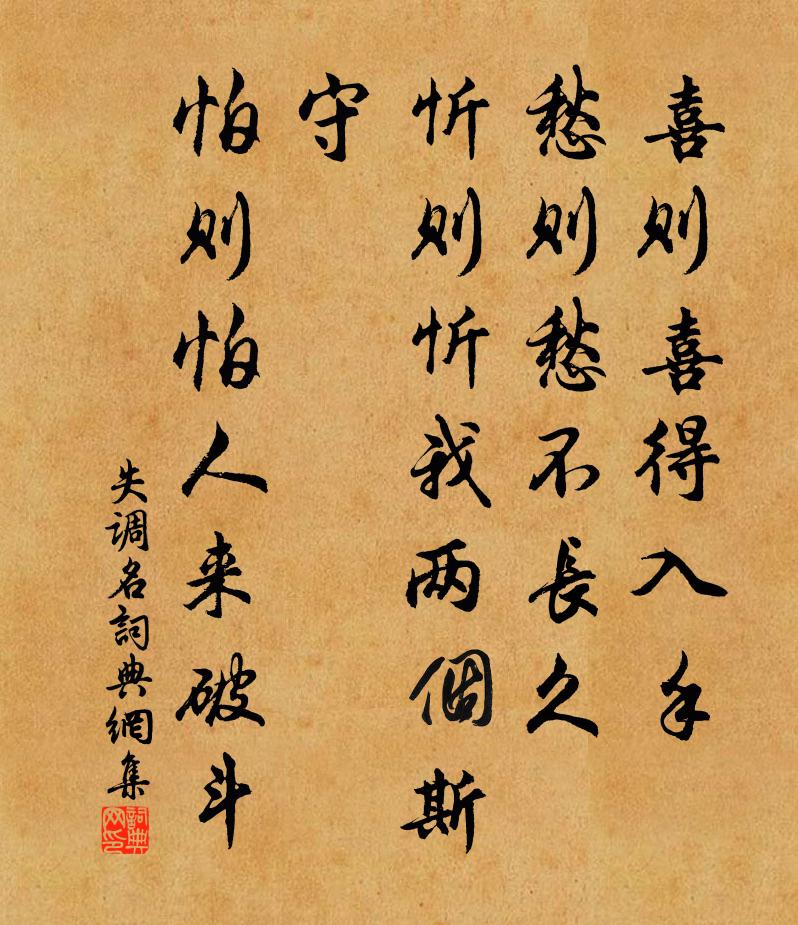 喜则喜得入手
愁则愁不長久
忻则忻我两個斯
守
怕则怕人来破斗
失调名詞典網集
詞典
网印